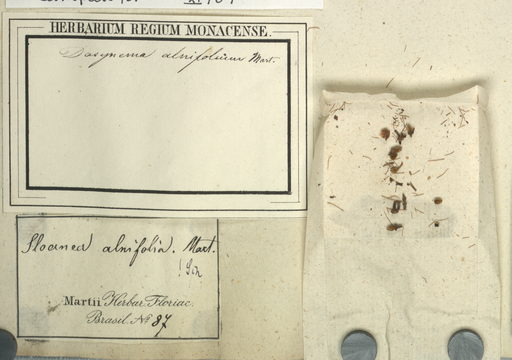 HERBARIUM REGIUM MONACENSE.
Dasynema alnifolium Mart.
Sloanea alnifolia. Mart.
Martii Herbar. Florae.
Brasil. No 87